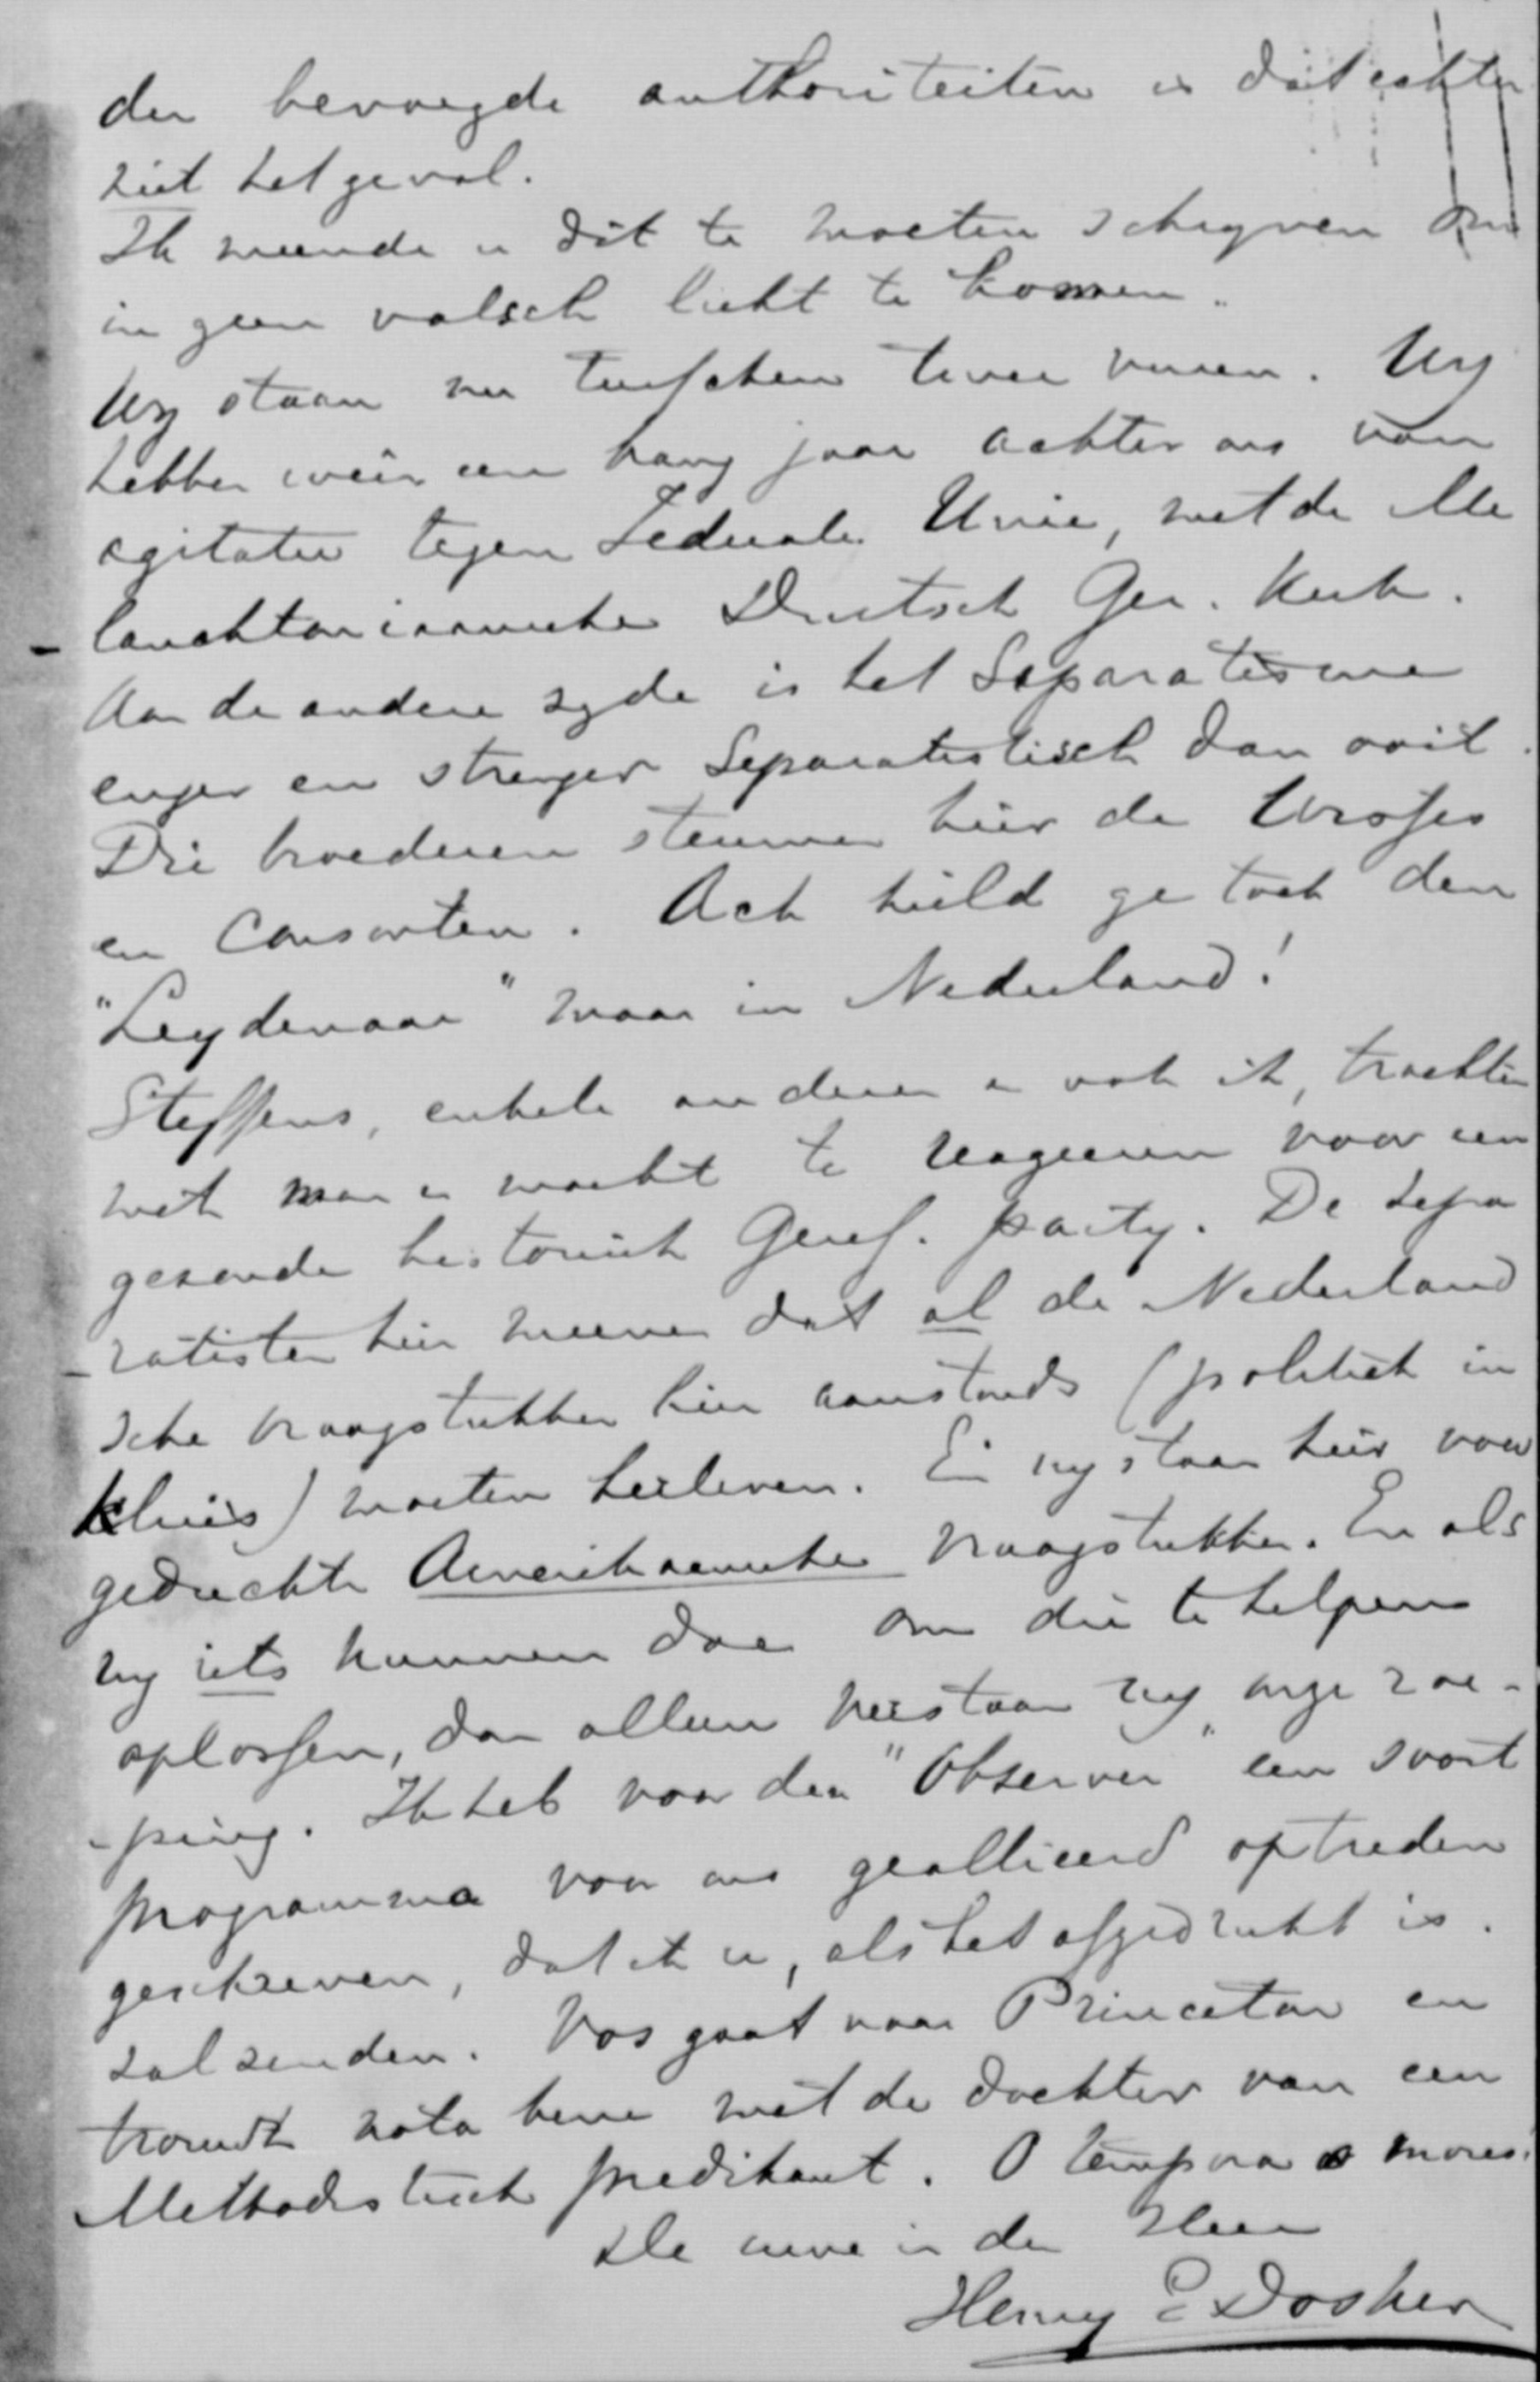 der bevoegde authoriteiten is dat echter
niet het geval.
Ik meende u dit te moeten schryven om
in geen valsch licht te komen.
Wy staan nu tusschen twee vuren. Wy
hebben weer een bang jaar achter ons van
agitatie tegen Federale Unie, met de Me
lanchtoniaansche Duitsch Ger. Kerk.
Aan de andere zyde is het Separatisme
enger en strenger Separatistisch dan ooit.
Die broederen steunen hier de Wrosses
en Consorten. Ach hield ge toch den
"Leydenaar" maar in Nederland!
Steffens, enkele anderen en ook ik, trachten
met man en macht te reageeren voor een
gezonde historisch Geref. party. De Sepa
ratisten hier meenen dat al de Nederland
sche vraagstukken hier aanstonds (politiek in
kluis) moeten herleven. En wy staan hier voor
geduchte Amerikaansche vraagstukken. En als
wy iets kunnen doen om die te helpen
oplossen, dan alleen verstaan wy onze roe-
-ping. Ik heb voor den "Observer" een soort
programma voor ons geallieerd optreden
geschreven, dat ik u, als het afgedrukt is.
zal zenden. Vos gaat naar Princeton en
trouwdt nota bene met de dochter van een
Methodistisch predikant. O tempora o mores!
Uw in den Heer
Henry E Dosker